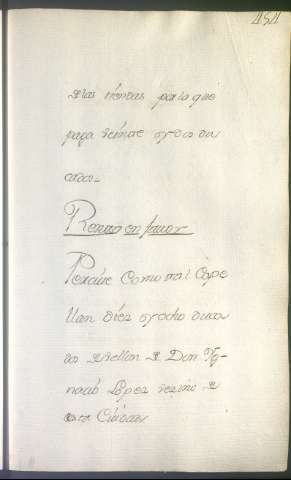 454
Dias rentas por lo que
paga veinte ocho du
cados_
Renta en favor
Percive Como tal Cape
llan diez y ocho duca
dos de vellon de Don Yg-
nacio Lopez vezino de
esta Ciudad